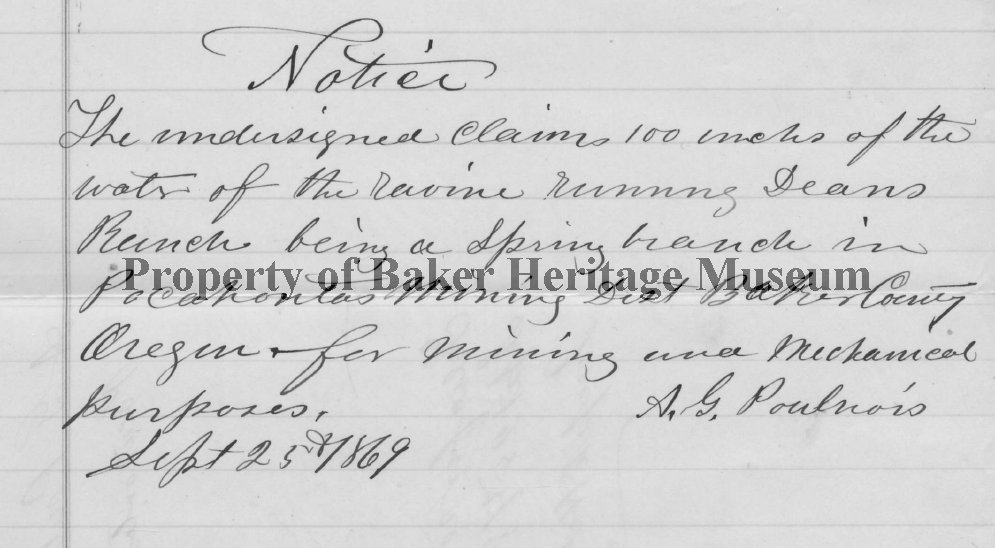 Notice
The undersigned Claims 100 inches of the
water of the ravine running Deans
Ranch being a Spring branch in
Property of Baker Heritage Museum
Pocahontas Mining Dist Baker County
Oregon for mining and Mechanical
purposes.
A. G. Poulnois
Sept 25d 1869